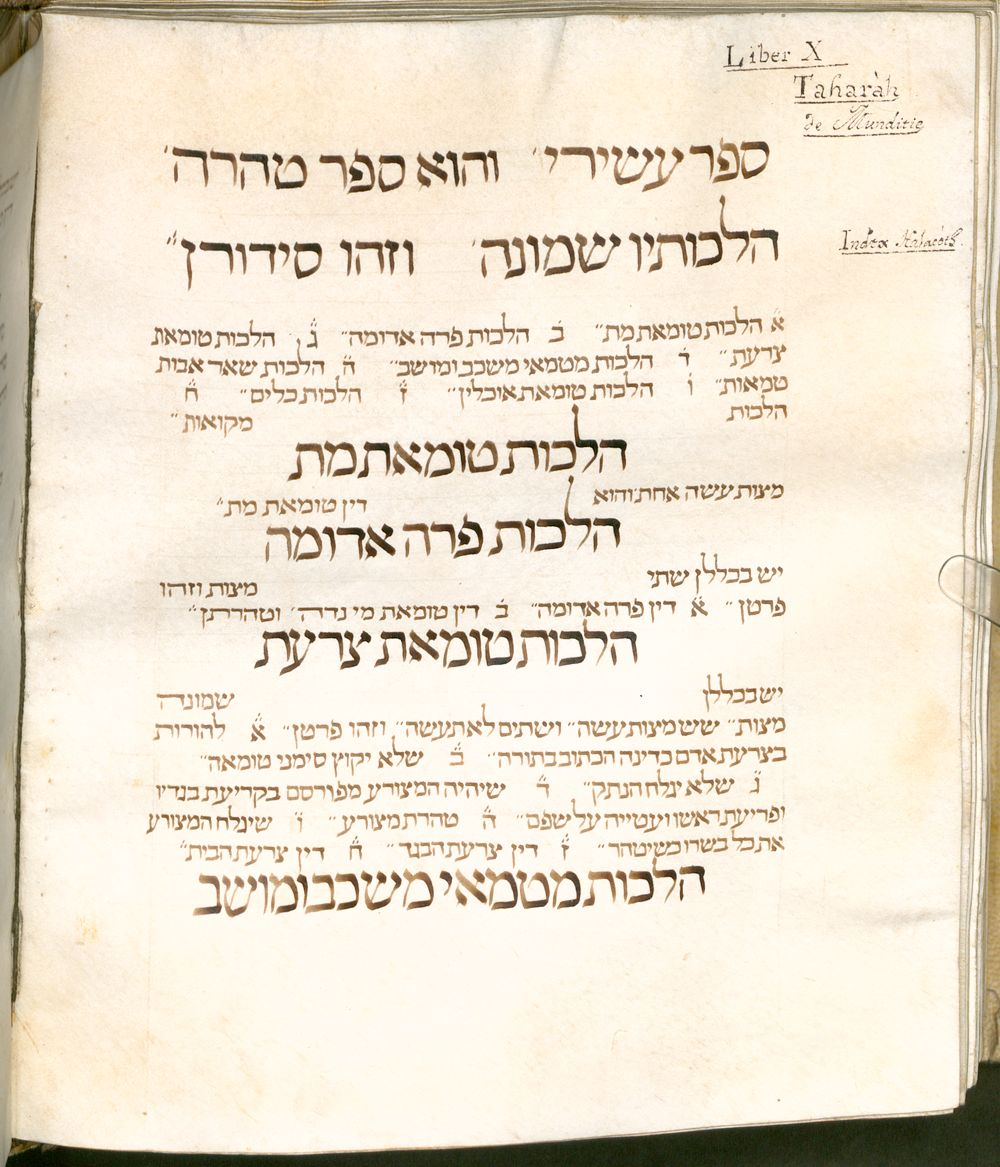 Liber X
Taharàh
de Munditie
ספר עשירי׳ והוא ספר טהרה׳
הלכותיו שמונה׳ וזהו סידורן״
Index Halacóth.
א הלכות טומאת מת״ ב הלכות פרה אדומה״ ג הלכות טומאת
צרעת״ ד הלכות מטמאי משכב ומושב״ ה הלכות שאר אבות
טמאות״ ו הלכות טומאת אוכלין״ ז הלכות כלים״ ח
הלכות מקואות״
הלכות טומאת מת
מצות עשה אחת׳ והוא דין טומאת מת״
הלכות פרה אדומה
יש בכללן שתי מצות וזהו
פרטן״ א דין פרה אדומה״ ב דין טומאת מי נדה׳ וטהרתן״
הלכות טומאת צרעת
יש בכללן שמונה
מצות״ שש מצות עשה״ ושתים לא תעשה״ וזהו פרטן״ א להורות
בצרעת אדם כדינה הכתוב בתורה״ ב שלא יקוץ סימני טומאה״
ג שלא יגלח הנתק״ ד שיהיה המצורע מפורסם בקריעת בגדיו
ופריעת ראשו ועטייה על שפם״ ה טהרת מצורע״ ו שיגלח המצורע
את כל בשרו כשיטהר״ ז דין צרעת הבגד״ ח דין צרעת הבית״
הלכות מטמאי משכב ומושב